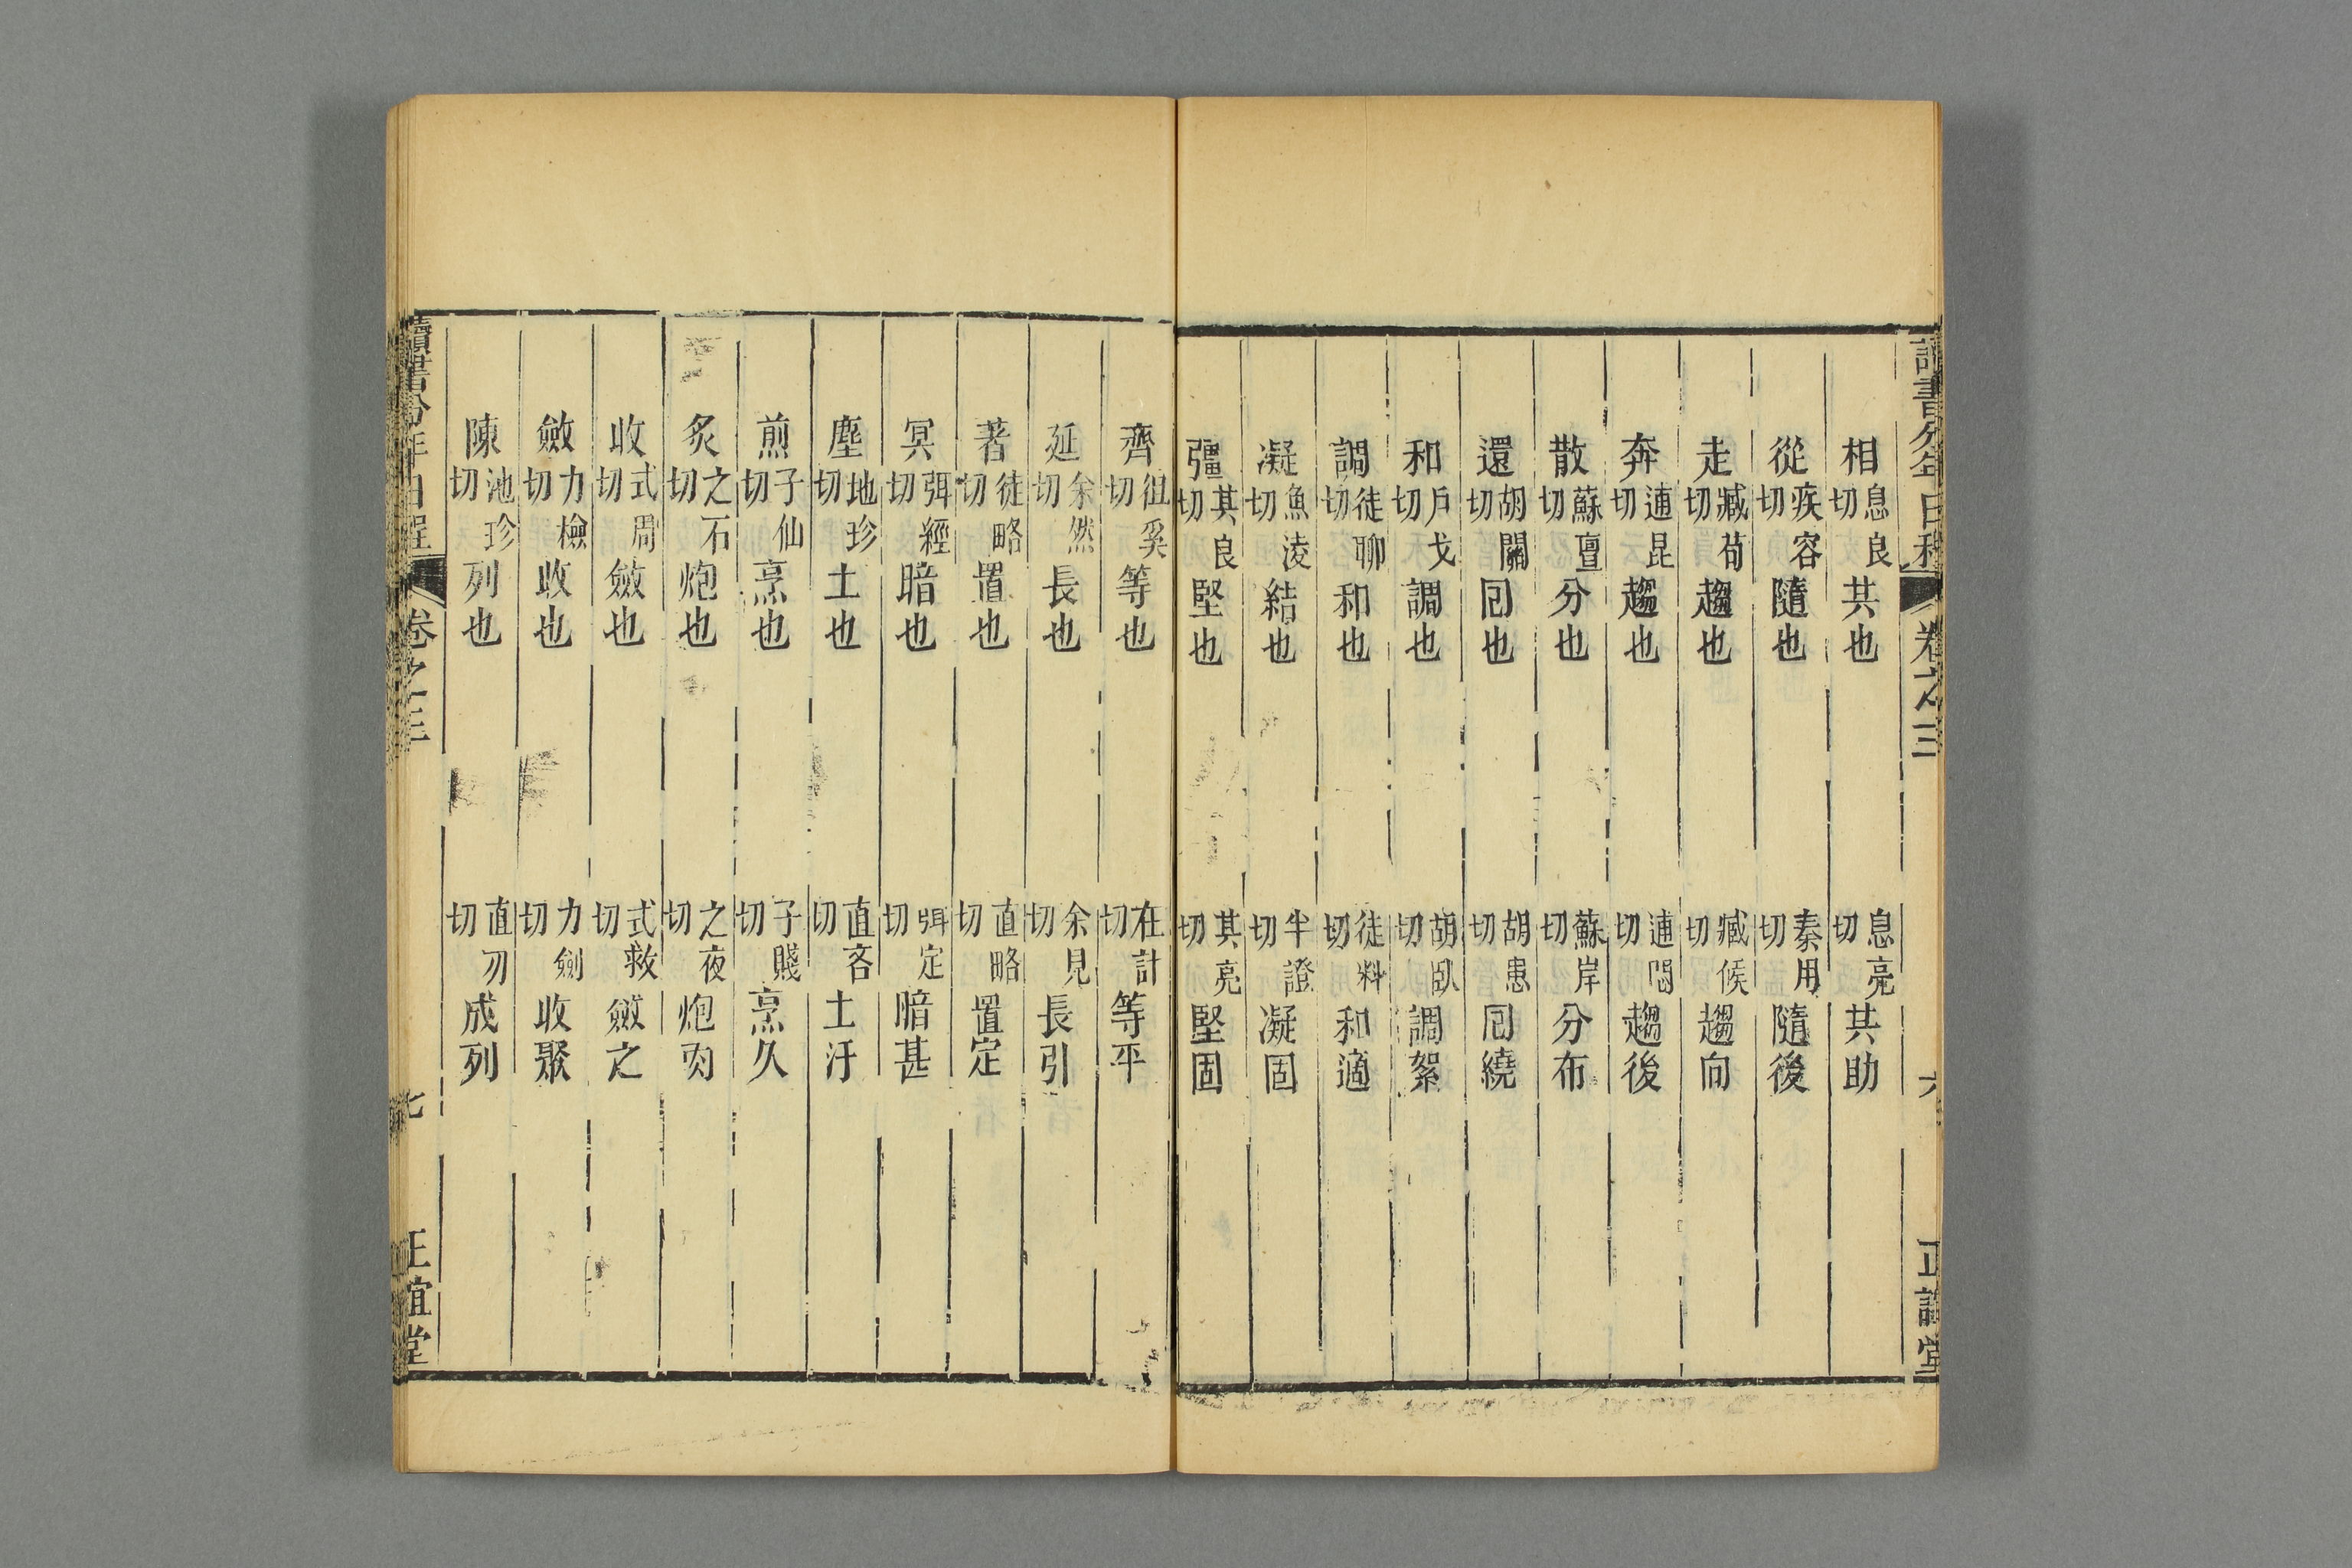 讀書分年日程 卷之三 六 正誼堂
相息良切共也 息亮切共助
從疾容切隨也 秦用切隨後
走臧苟切趨也 臧候切趨向
奔逋昆切趨也 逋悶切趨後
散蘇亶切分也 蘇岸切分布
還胡關切囘也 胡患切囘繞
和戶戈切調也 胡臥切調絮
調徒聊切和也 徒料切和適
凝魚淩切結也 牛證切凝固
彊其良切堅也 其亮切堅固
齊徂奚切等也 在計切等平
延余然切長也 余見切長引
著徒略切置也 直略切置定
冥弭經切暗也 弭定切暗甚
塵地珍切土也 直吝切土汙
煎子仙切烹也 子賤切烹久
炙之石切炮也 之夜切炮肉
收式周切斂也 式救切斂之
斂力檢切收也 力劍切收聚
陳池珍切列也 直刃切成列
讀書分年日程 卷之三 七 正誼堂